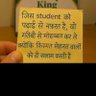 King
जिस student को
पढाई से नफरत है, वो
गरीबी से मोहब्बत कर ले
क्योंकि किस्मत मेहनत वालों
को ही सलाम करती है